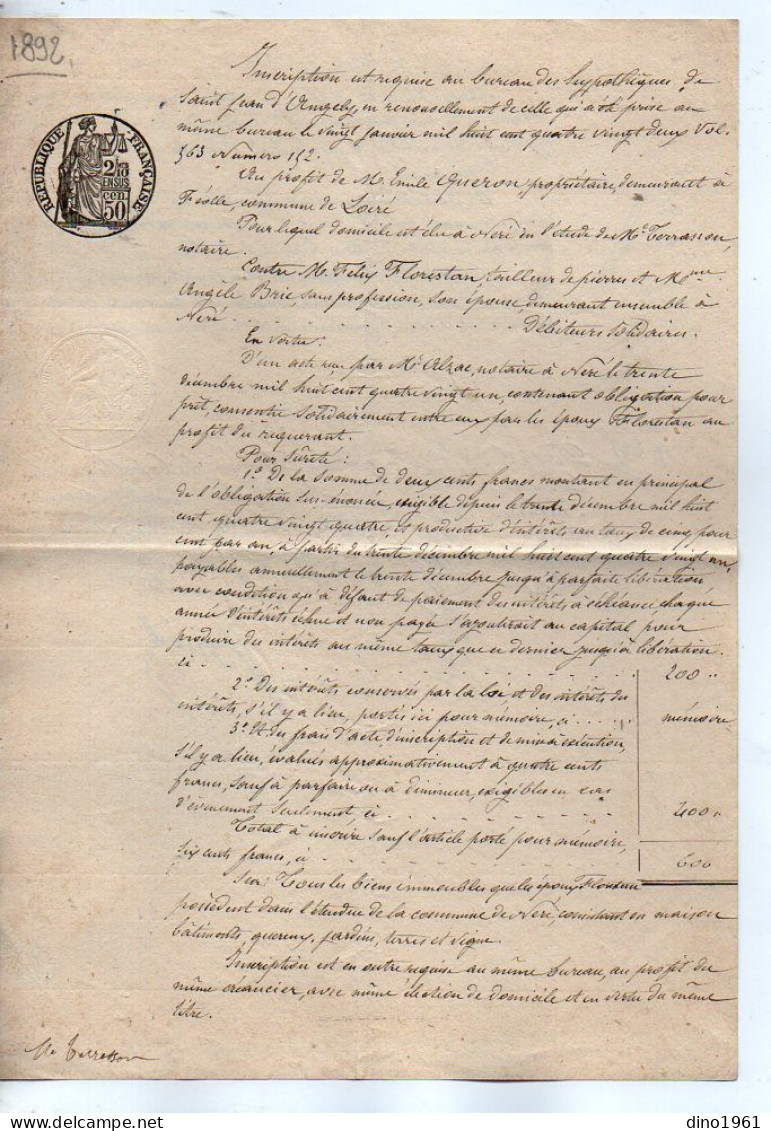 1892
Inscription est requise au bureau des hypothèques de
Saint Jean d'Angely, en renouvellement de celle qui a été prise au
même bureau le vingt janvier mil huit cent quatre vingt deux Vol.
363 Numéro 152.
RÉPUBLIQUE FRANÇAISE
2/10 EN SUS
50 cen
Au profit de M. Emile Queron propriétaire, demeurant à
Féolle, commune de Loiré
Pour lequel domicile est élu à Néré en l'étude de Me Terrasson,
notaire.
Contre M. Félix Florestan, tailleur de pierres et Mme
Angèle Brie, sans profession, son épouse, demeurant ensemble à
Néré. Débiteurs solidaires.
En vertu:
D'un acte reçu par Me Alzac, notaire à Néré le trente
décembre mil huit cent quatre vingt un, contenant obligation pour
prêt, consentie solidairement entre eux par les époux Florestan au
profit du requérant.
Pour sûreté:
1º De la somme de deux cents francs montant en principal
de l'obligation sus-énoncée, exigible depuis le trente décembre mil huit
cent quatre vingt quatre, et productive d'intérêts au taux de cinq pour
cent par an, à partir du trente décembre mil huit cent quatre vingt un,
payables annuellement le trente décembre jusqu'à parfaite libération
avec condition qu'à défaut de paiement des intérêts à échéance, chaque
année d'intérêts échue et non payée s'ajouterait au capital pour
produire des intérêts au même taux que ce dernier jusqu'à libération.
ci 200 "
2º Des intérêts conservés par la loi et des intérêts des
intérêts, s'il y a lieu, portés ici pour mémoire, ci mémoire
3º Et des frais d'acte d'inscription et de mise à exécution,
s'il y a lieu, évalués approximativement à quatre cents
francs, sauf à parfaire ou à diminuer, exigibles en cas
d'évènement seulement, ci 400 "
Total à inscrire sauf l'article porté pour mémoire,
six cents francs, ci 600
Sur: Tous les biens immeubles que les époux Florestan
possèdent dans l'étendue de la commune de Néré, consistant en maison
bâtiments, quereux, jardins, terres et vigne.
Inscription est en outre requise au même bureau, au profit du
même créancier, avec même élection de domicile et en vertu du même
titre.
Me Terrasson
dino1961